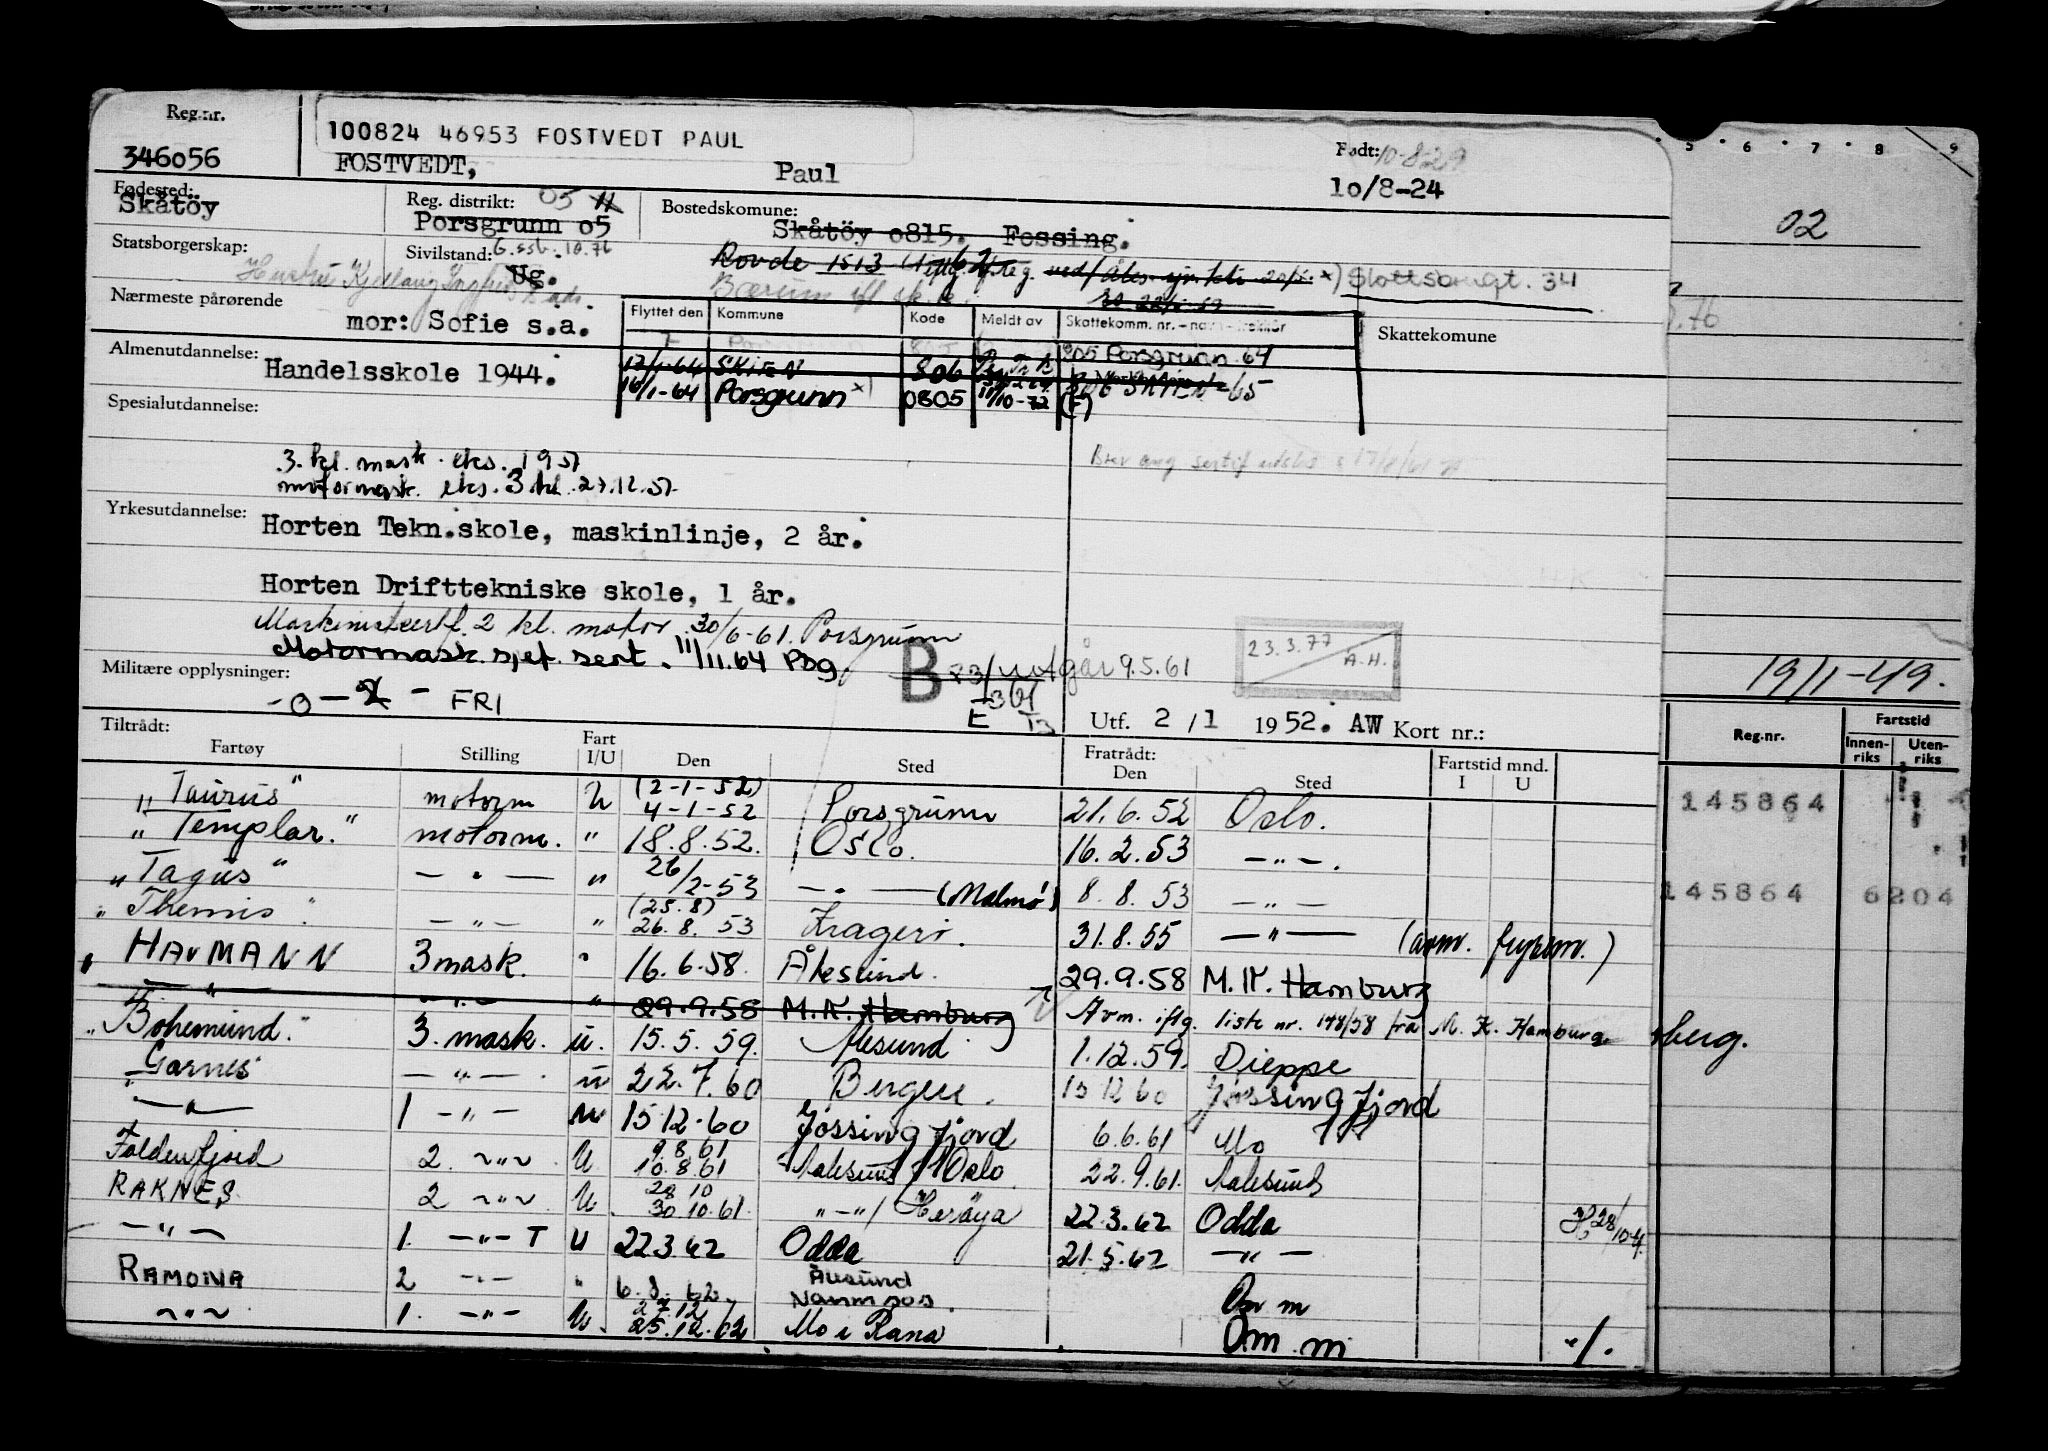 Reg.nr.
346056
100824 46953 FOSTVEDT PAUL
FOSTVEDT, Paul
Født:
10/8-24
Fødested:
Skåtöy
Reg. distrikt: 05
Porsgrunn o5
Bostedskomune:
Skåtöy o815. Fossing.
Statsborgerskap:
Sivilstand: G. 10.76
Ug.
Rovde 1513
Slottsangt. 34
Bærum
Nærmeste pårørende
mor: Sofie s.a.
Flyttet den Kommune Kode Meldt av Skattekomm. nr.
Skattekomune
17/1-64 SKIEN 806 805 Porsgrunn 64
16/1-64 Porsgrunn x) 0805 11/10-72 806 SKIEN 65
(F)
Almenutdannelse: Handelsskole 1944.
Spesialutdannelse:
3. kl. mask. eks. 1951
motormask. eks. 3 kl. 27.12.51.
Yrkesutdannelse: Horten Tekn.skole, maskinlinje, 2 år.
Horten Drifttekniske skole, 1 år.
Maskinistsertf. 2 kl. motor 30/6-61. Porsgrunn
Motormask.sjef. sert. 11/11.64 Pbg.
Militære opplysninger:
-0- - FRI
B 23/ utgår 9.5.61
23.3.77
A.H.
Utf. 2/1 1952. AW Kort nr.:
Tiltrådt:
Fartøy Stilling Fart I/U Den Sted
Fratrådt:
Den Sted
Fartstid mnd.
I U
"Taurus" motorm U (2-1-52) 4-1-52 Porsgrunn 21.6.52 Oslo.
"Templar." motorm. " 18.8.52. Oslo. 16.2.53 —"—.
"Tagus" —"— " 26/2-53 —"— (Malmö) 8.8.53 —"—
"Themis". —"— " (25.8) 26.8.53 Kragerö. 31.8.55 —"— (avm. )
" HAVMANN 3 mask. " 16.6.58. Ålesund. 29.9.58 M.K. Hamburg
—"— —"— " 29.9.58 M.K. Hamburg Avm. iflg. liste nr. 148/58 fra M.K. Hamburg
"Bohemund." 3. mask. u. 15.5.59. Alesund. 1.12.59. Dieppe
Garnes —"—. u 22.7.60 Bergen. 15 12 60 Jössingfjord
—"— 1 —"— u 15.12.60 Jössingfjord 6.6.61 Mo
Foldenfjord 2. ~"~ U 9.8.61 10.8.61 Aalesund / Oslo. 22.9.61. Aalesund
RAKNES 2 ~"~. U 28 10 30.10.61. "—"/ Herøya 22.3.62 Odda
—"— 1. —"— T U 22.3.62 Odda 21.5.62 —"—
RAMONA 2 —"— " 6.8.62. Ålesund Namsos. Om m
~"~ 1. —"— U. 27 12 25.12.62 Mo i Rana Om m
5 6 7 8 9
02
76
19/1-49.
Reg.nr.
Fartstid
Innenriks Utenriks
145864
145864 6204
berg.